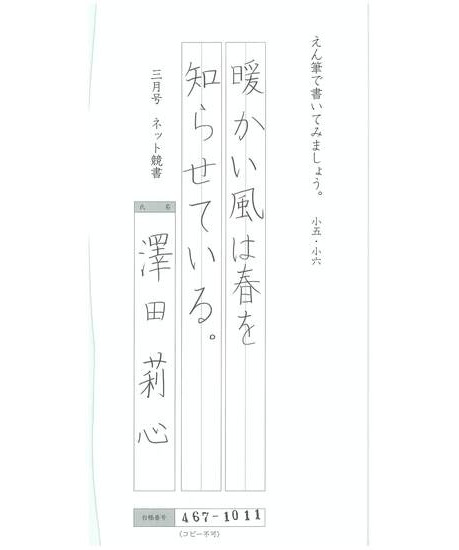 えん筆で書いてみましょう。 小五・小六
暖かい風は春を
知らせている。
三月号 ネット競書
氏名
澤田莉心
台帳番号 467-1011
(コピー不可)